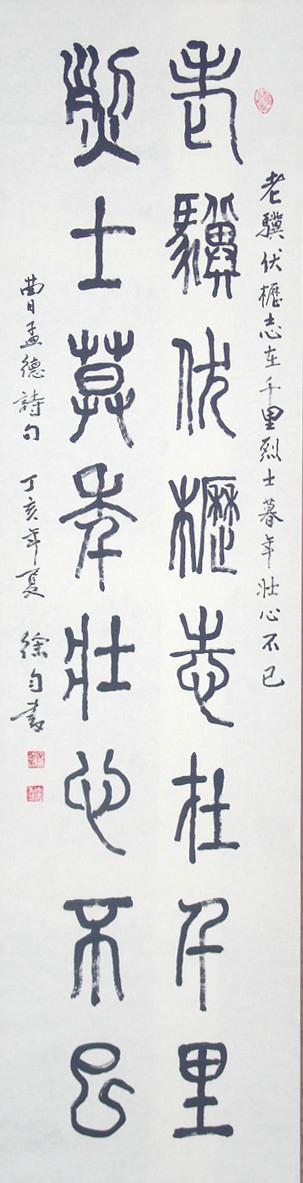 老骥伏櫪志在千里烈士暮年壮心不已
老驥伏櫪志在千里
烈士莫年壯心不已
曹孟德詩句 丁亥年夏 徐自書